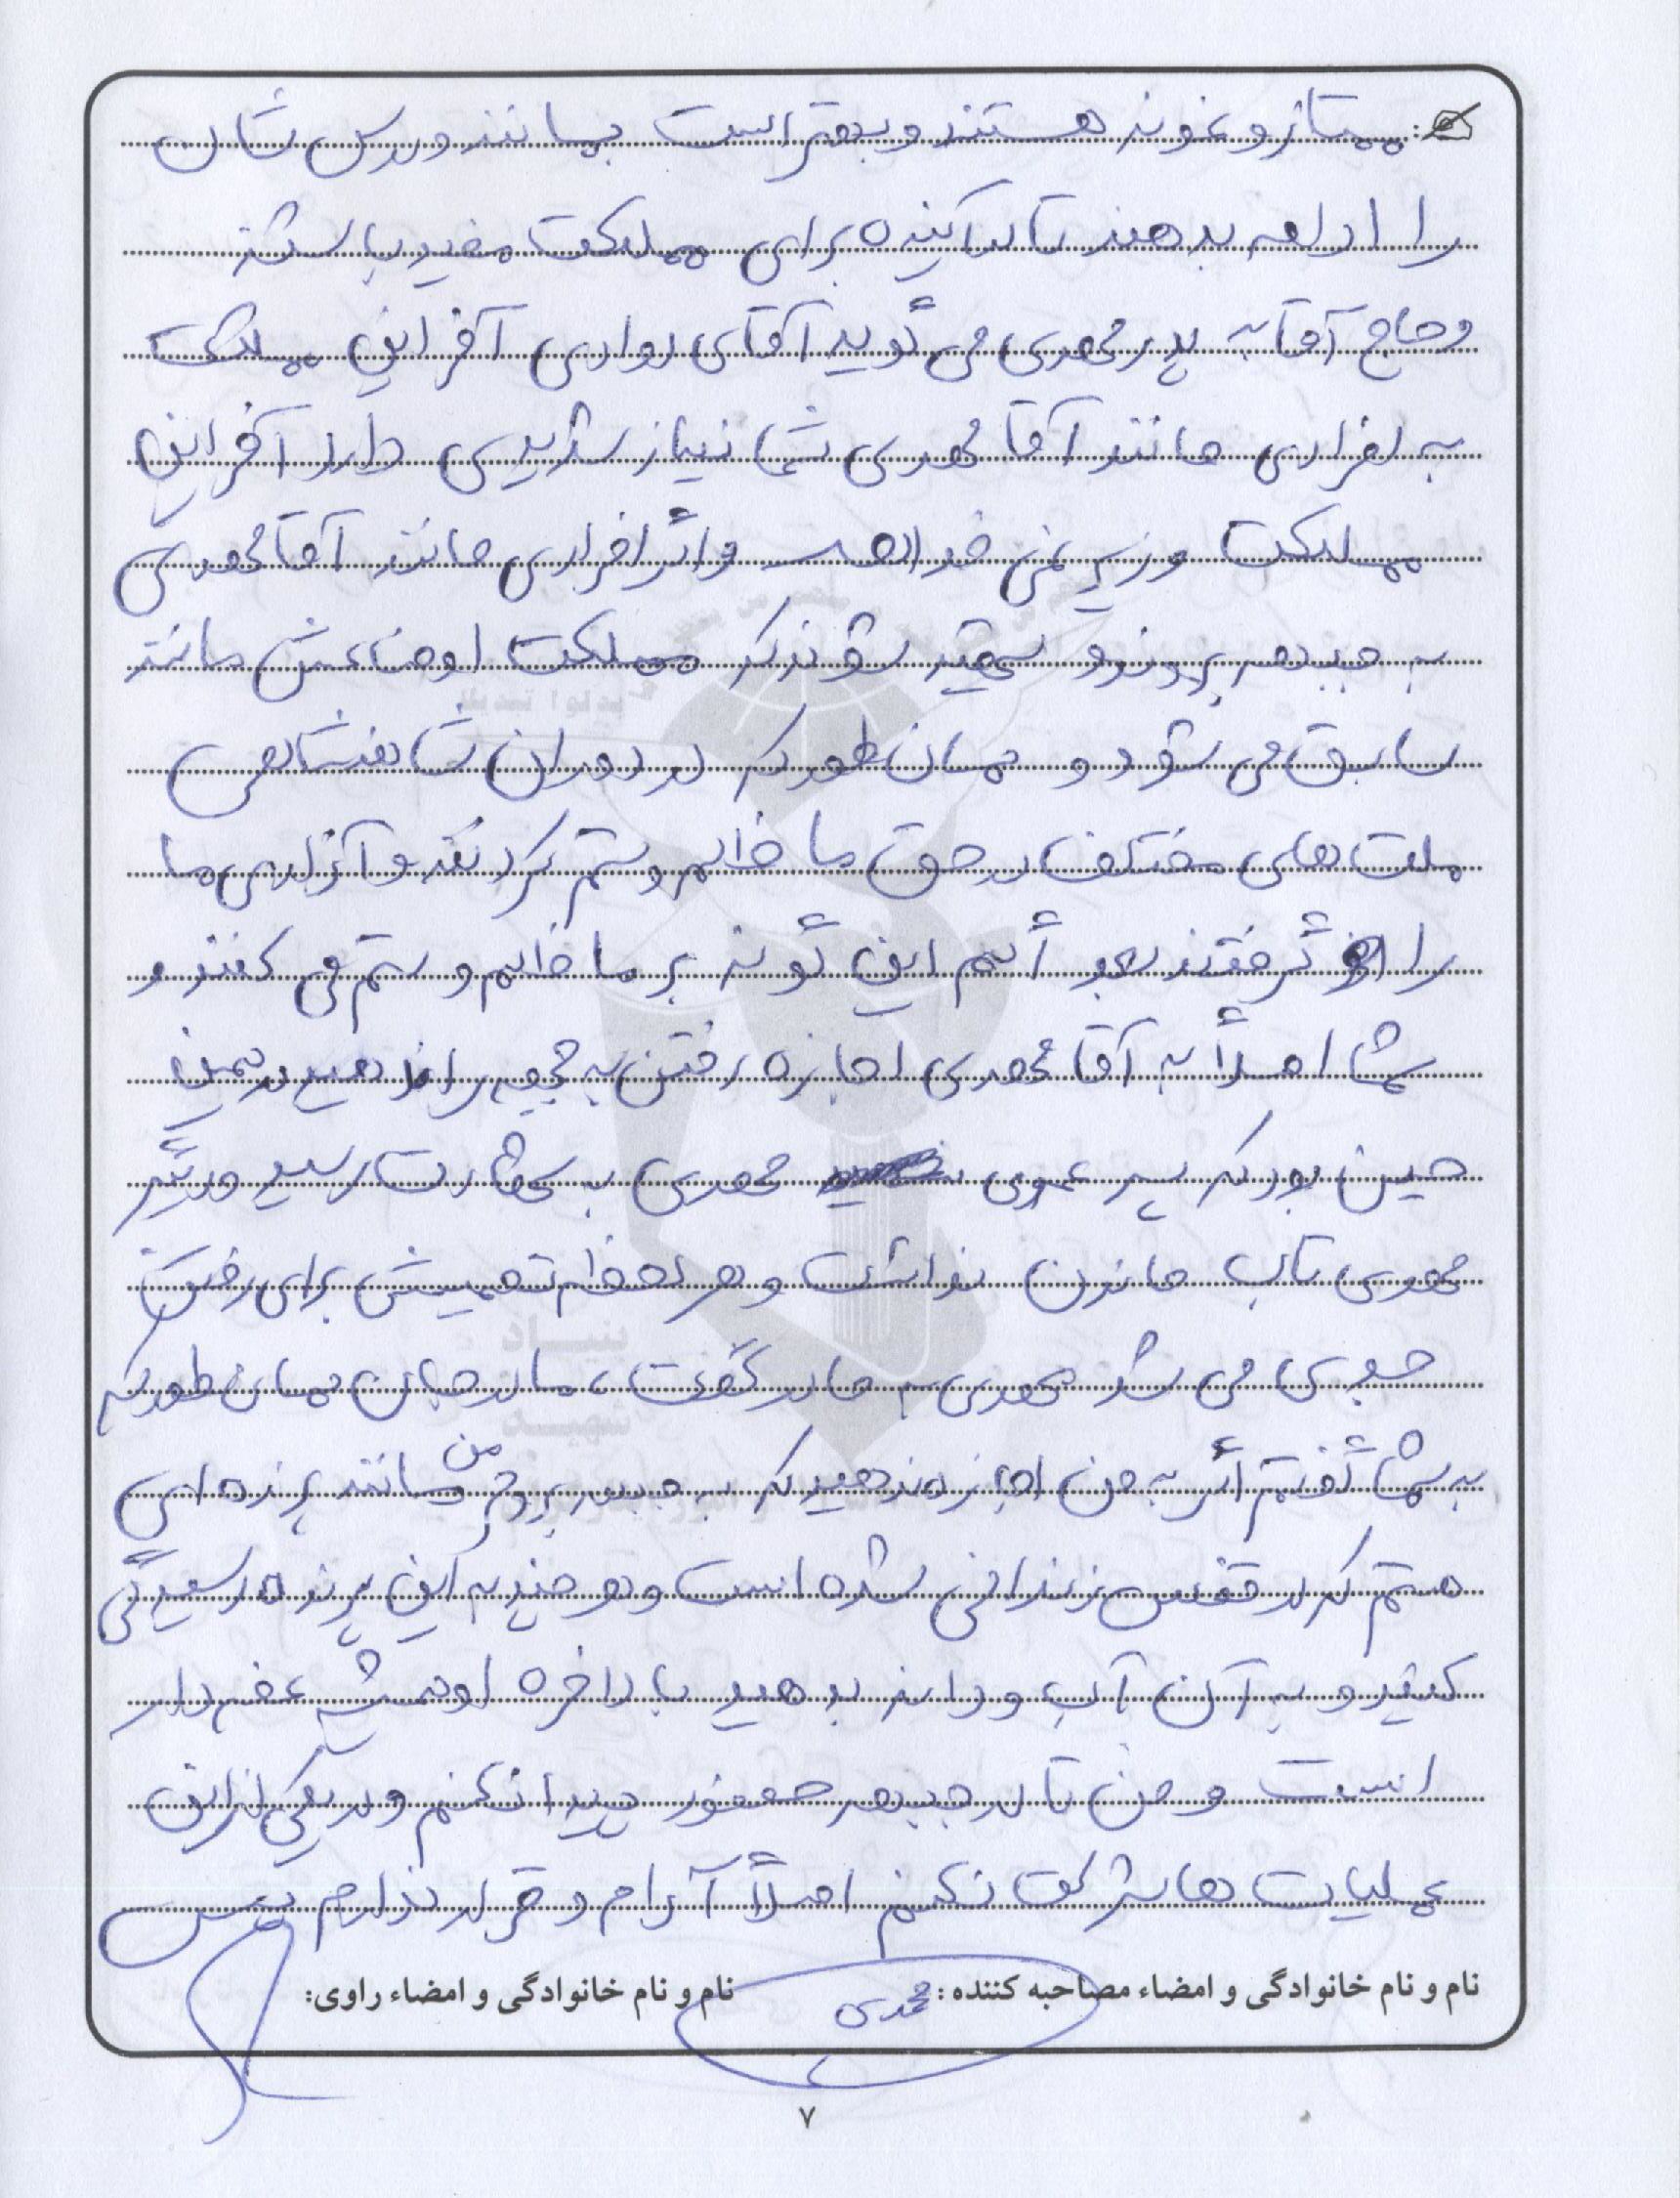 ممتاز و نمونه هستند و بهتر است بمانند و درس شان
را ادامه بدهند تا در آینده برای مملکت مفید باشند
و حاج آقا به پدر مهدی می گوید آقای مرادی آخر این مملکت
به افرادی مانند آقا مهدی شما نیاز شدیدی دارد آخر این
مملکت وزیر نمی خواهد و اگر افرادی مانند آقا مهدی
به جبهه بروند و شهید شوند که مملکت اوضاعش مانند
سابق می شود و همان طور که در دوران شاهنشاهی
ملت های مختلف در حق ما ظالم و ستم کردند و آزادی ما
را گرفتند این گونه بر ما ظالم و ستم می کنند و
شما اصلاً به آقا مهدی اجازه رفتن به جبهه را ندهید در همین
حین بود که پسر عموی مهدی به شهادت رسید و دیگر
مهدی تاب ماندن نداشت و هر لحظه تصمیمش برای رفتن
جدی می شد مهدی به مادر گفت، مادر جان همان طور که
به شما گفتم اگر به من اجازه ندهید که به جبهه بروم من مانند پرنده ای
هستم که در قفس زندانی شده است و هر چند به این پرنده رسیدگی
کنید و به آن آب و دانه بدهید بالاخره او همیشه غم دار
است و من تا در جبهه حضور پیدا نکنم و در یکی از این
عملیات ها شرکت نکنم اصلاً آرام و قرار ندارم پس
نام و نام خانوادگی و امضاء مصاحبه کننده: محمدی
نام و نام خانوادگی و امضاء راوی:
۷